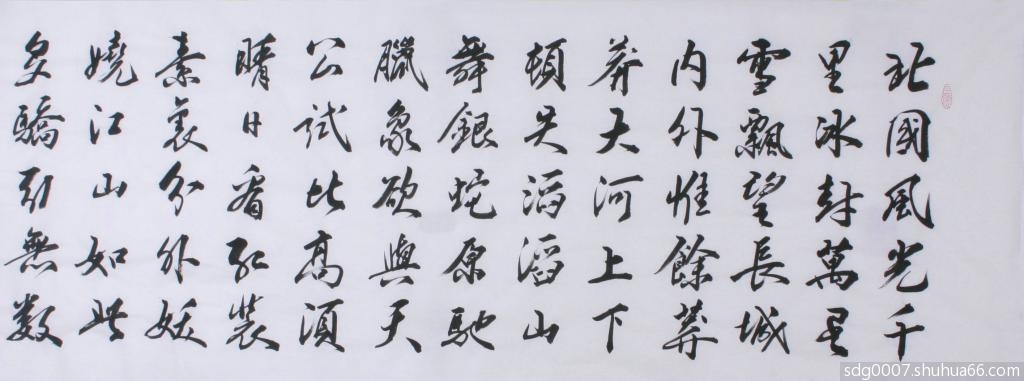 北國風光千
里冰封萬里
雪飄望長城
内外惟餘莽
莽大河上下
頓失滔滔山
舞銀蛇原馳
臘象欲與天
公試比高須
晴日看紅裝
素裹分外妖
嬈江山如此
多驕引無数
sdg0007.shuhua66.com